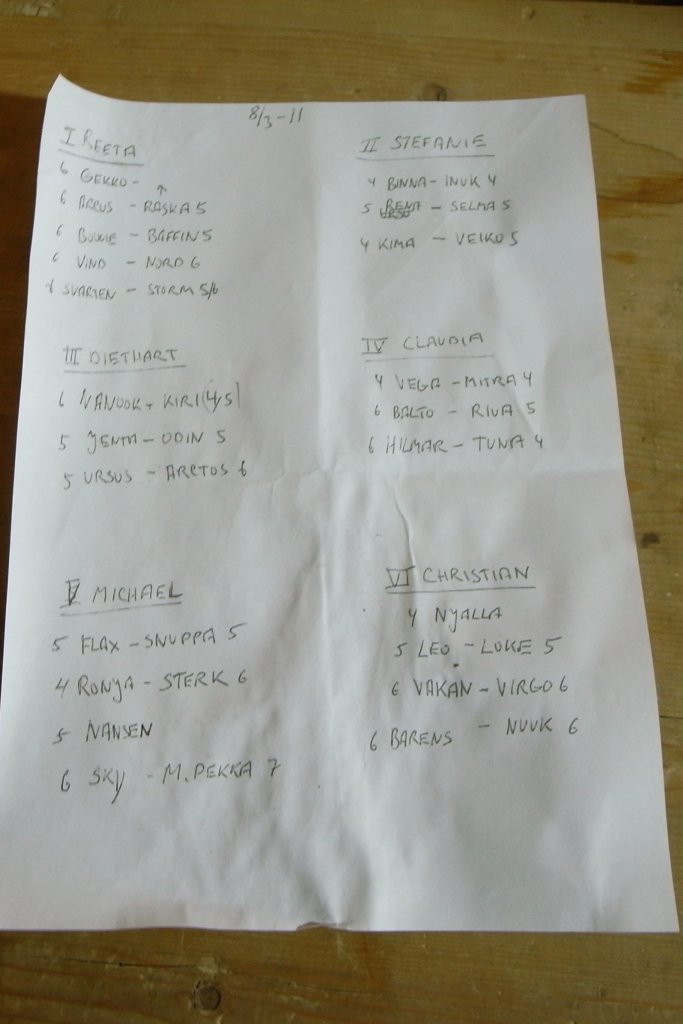 8/3-11
I REETA
6 GEKKO -
6 ARCUS - RASKA 5
6 BOWIE - BAFFIN 5
6 VIND - NORD 6
6 SVARTEN - STORM 5/6
II STEFANIE
4 BINNA - INUK 4
5 - SELMA 5
4 KIMA - VEIKO 5
III DIETHART
6 NANOOK - KIRI (4/5)
5 JENTA - ODIN 5
5 URSUS - ARCTOS 6
IV CLAUDIA
4 VEGA - MITRA 4
6 BALTO - RIVA 5
6 HILMAR - TUNA 4
V MICHAEL
5 FLAX - SNUPPA 5
4 RONJA - STERK 6
5 NANSEN
6 SKY - M. PEKKA 7
VI CHRISTIAN
4 NJALLA
5 LEO - LUKE 5
6 VAKAN - VIRGO 6
6 BARENS - NUUK 6